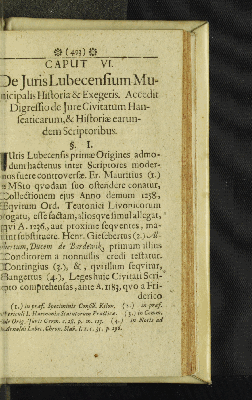 (423)
CAPUT VI.
De Juris Lubecensium Mu-
nicipalis Historia & Exegetis. Accedit
Digressio de Jure Civitatum Han-
seaticarum, & Historiæ earun-
dem Scriptoribus.
§. I.
JUris Lubecensis primæ Origines admo-
dum hactenus inter Scriptores moder-
nos fuere controversæ. Er. Mauritius (1.)
MSto qvodam suo ostendere conatur,
Collectionem ejus Anno demum 1258,
Eqvitum Ord. Teutonici Livonicorum
rogatu, esse factam, aliosqve simul allegat,
qvi A. 1236, aut proxime seqventes, ma-
lint substituere. Henr. Giesebertus (2.)
Ducem de Bardewik, primum illius
Conditorem a nonnullis credi testatur.
Contingius (3.), & , qvi illum seqvitur,
Bangertus (4.), Leges huic Civitati Scri-
pto comprehensas, ante A. 1183, qvo a Fri-
derico
(1.) in præf. Speciminis Consil. Kilon. (2.) in præf.
(3.) in Comm.
de Orig. Juris Germ. (4.) in Notis ad
Chron. Slav.